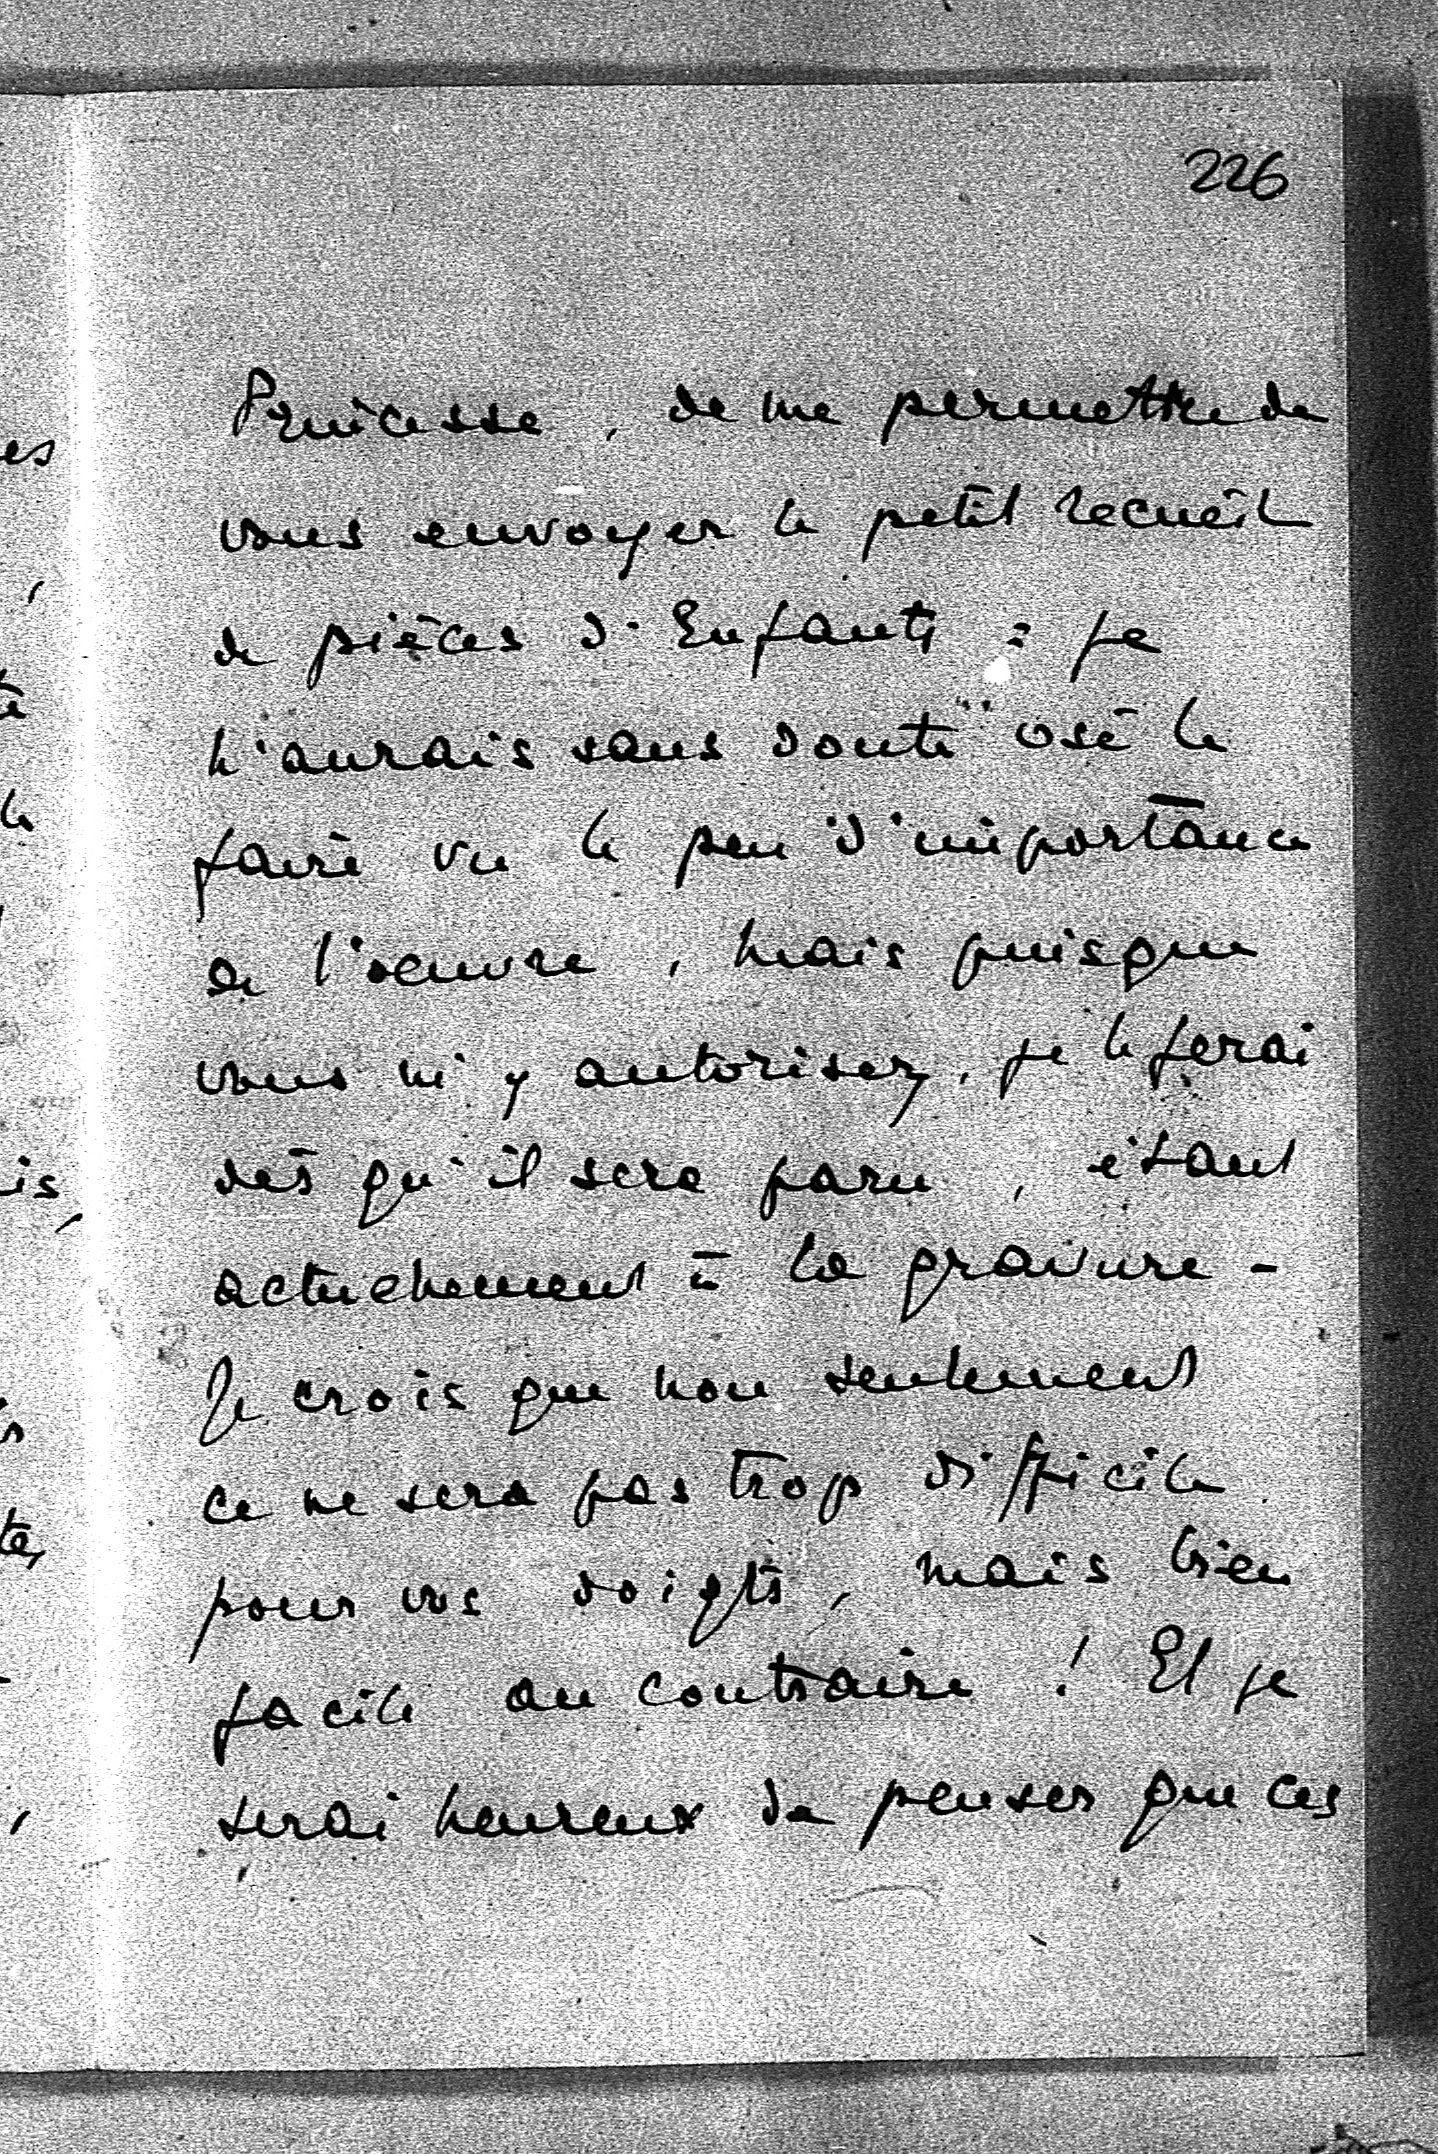 226
Princesse, de me permettre de
vous envoyer le petit recueil
de pièces d'Enfants : je
n'aurais sans doute osé le
faire vu le peu d'importance
de l'oeuvre, mais puisque
vous m'y autorisez, je le ferai
dès qu'il sera paru, étant
actuellement à la gravure -
Je crois que non seulement
ce ne sera pas trop difficile
pour vos doigts, mais bien
facile au contraire ! Et je
serai heureux de penser que ces